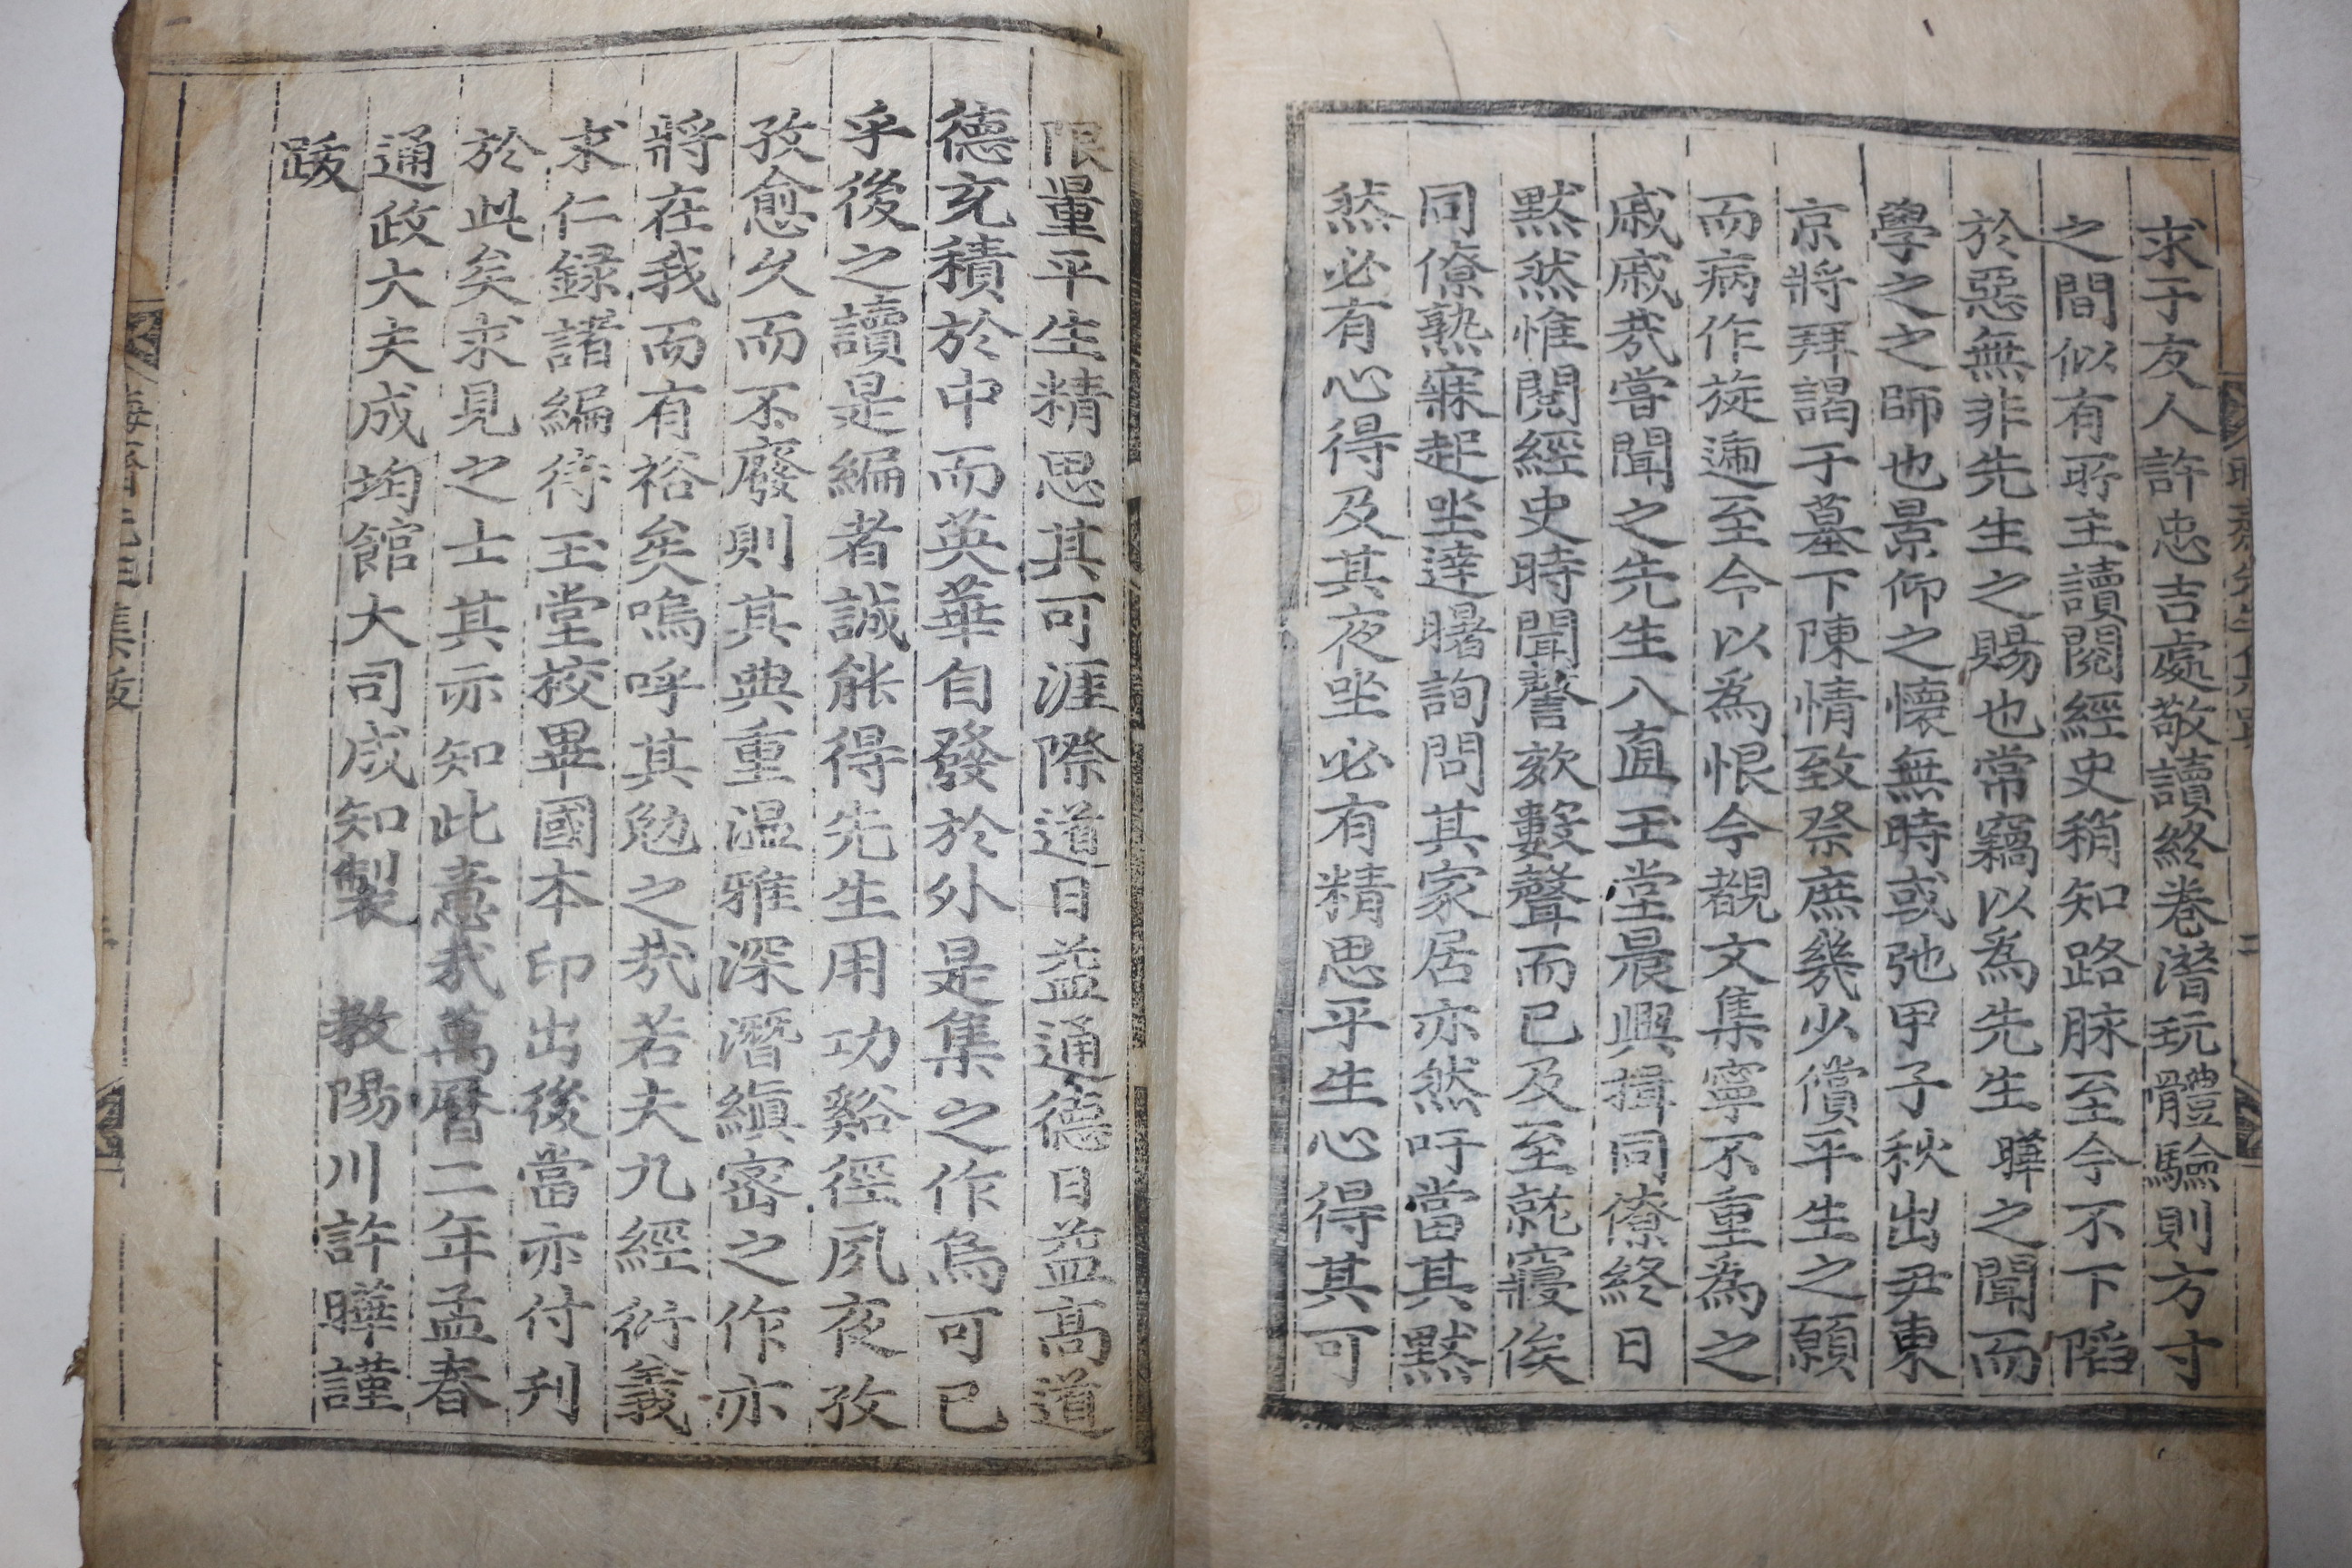 求于友人許忠吉處敬讀終卷潛玩體驗則方寸
之間似有所主讀閱經史稍知路脉至今不下陷
於惡無非先生之賜也常竊以爲先生曄之聞而
學之之師也景仰之懷無時或弛甲子秋出尹東
京將拜謁于墓下陳情致祭庶幾少償平生之願
而病作旋遞至今以爲恨今覩文集寧不重爲之
戚戚哉嘗聞之先生入直玉堂晨興揖同僚終日
默然惟閱經史時聞謦欬數聲而已及至就寢俟
同僚熟寐起坐達曙詢問其家居亦然吁當其默
然必有心得及其夜坐必有精思乎生心得其可
限量平生精思其可涯際道日益通德日益高道
德充積於中而英華自發於外是集之作烏可已
乎後之讀是編者誠能得先生用功谿徑夙夜孜
孜愈久而不廢則其典重温雅深潛縝密之作亦
將在我而有裕矣嗚呼其勉之哉若夫九經衍義
求仁録諸編待玉堂挍畢國本印出後當亦付刋
於此矣求見之士其亦知此意哉萬曆二年孟春
通政大夫成均館大司成知製 教陽川許曄謹
跋
二